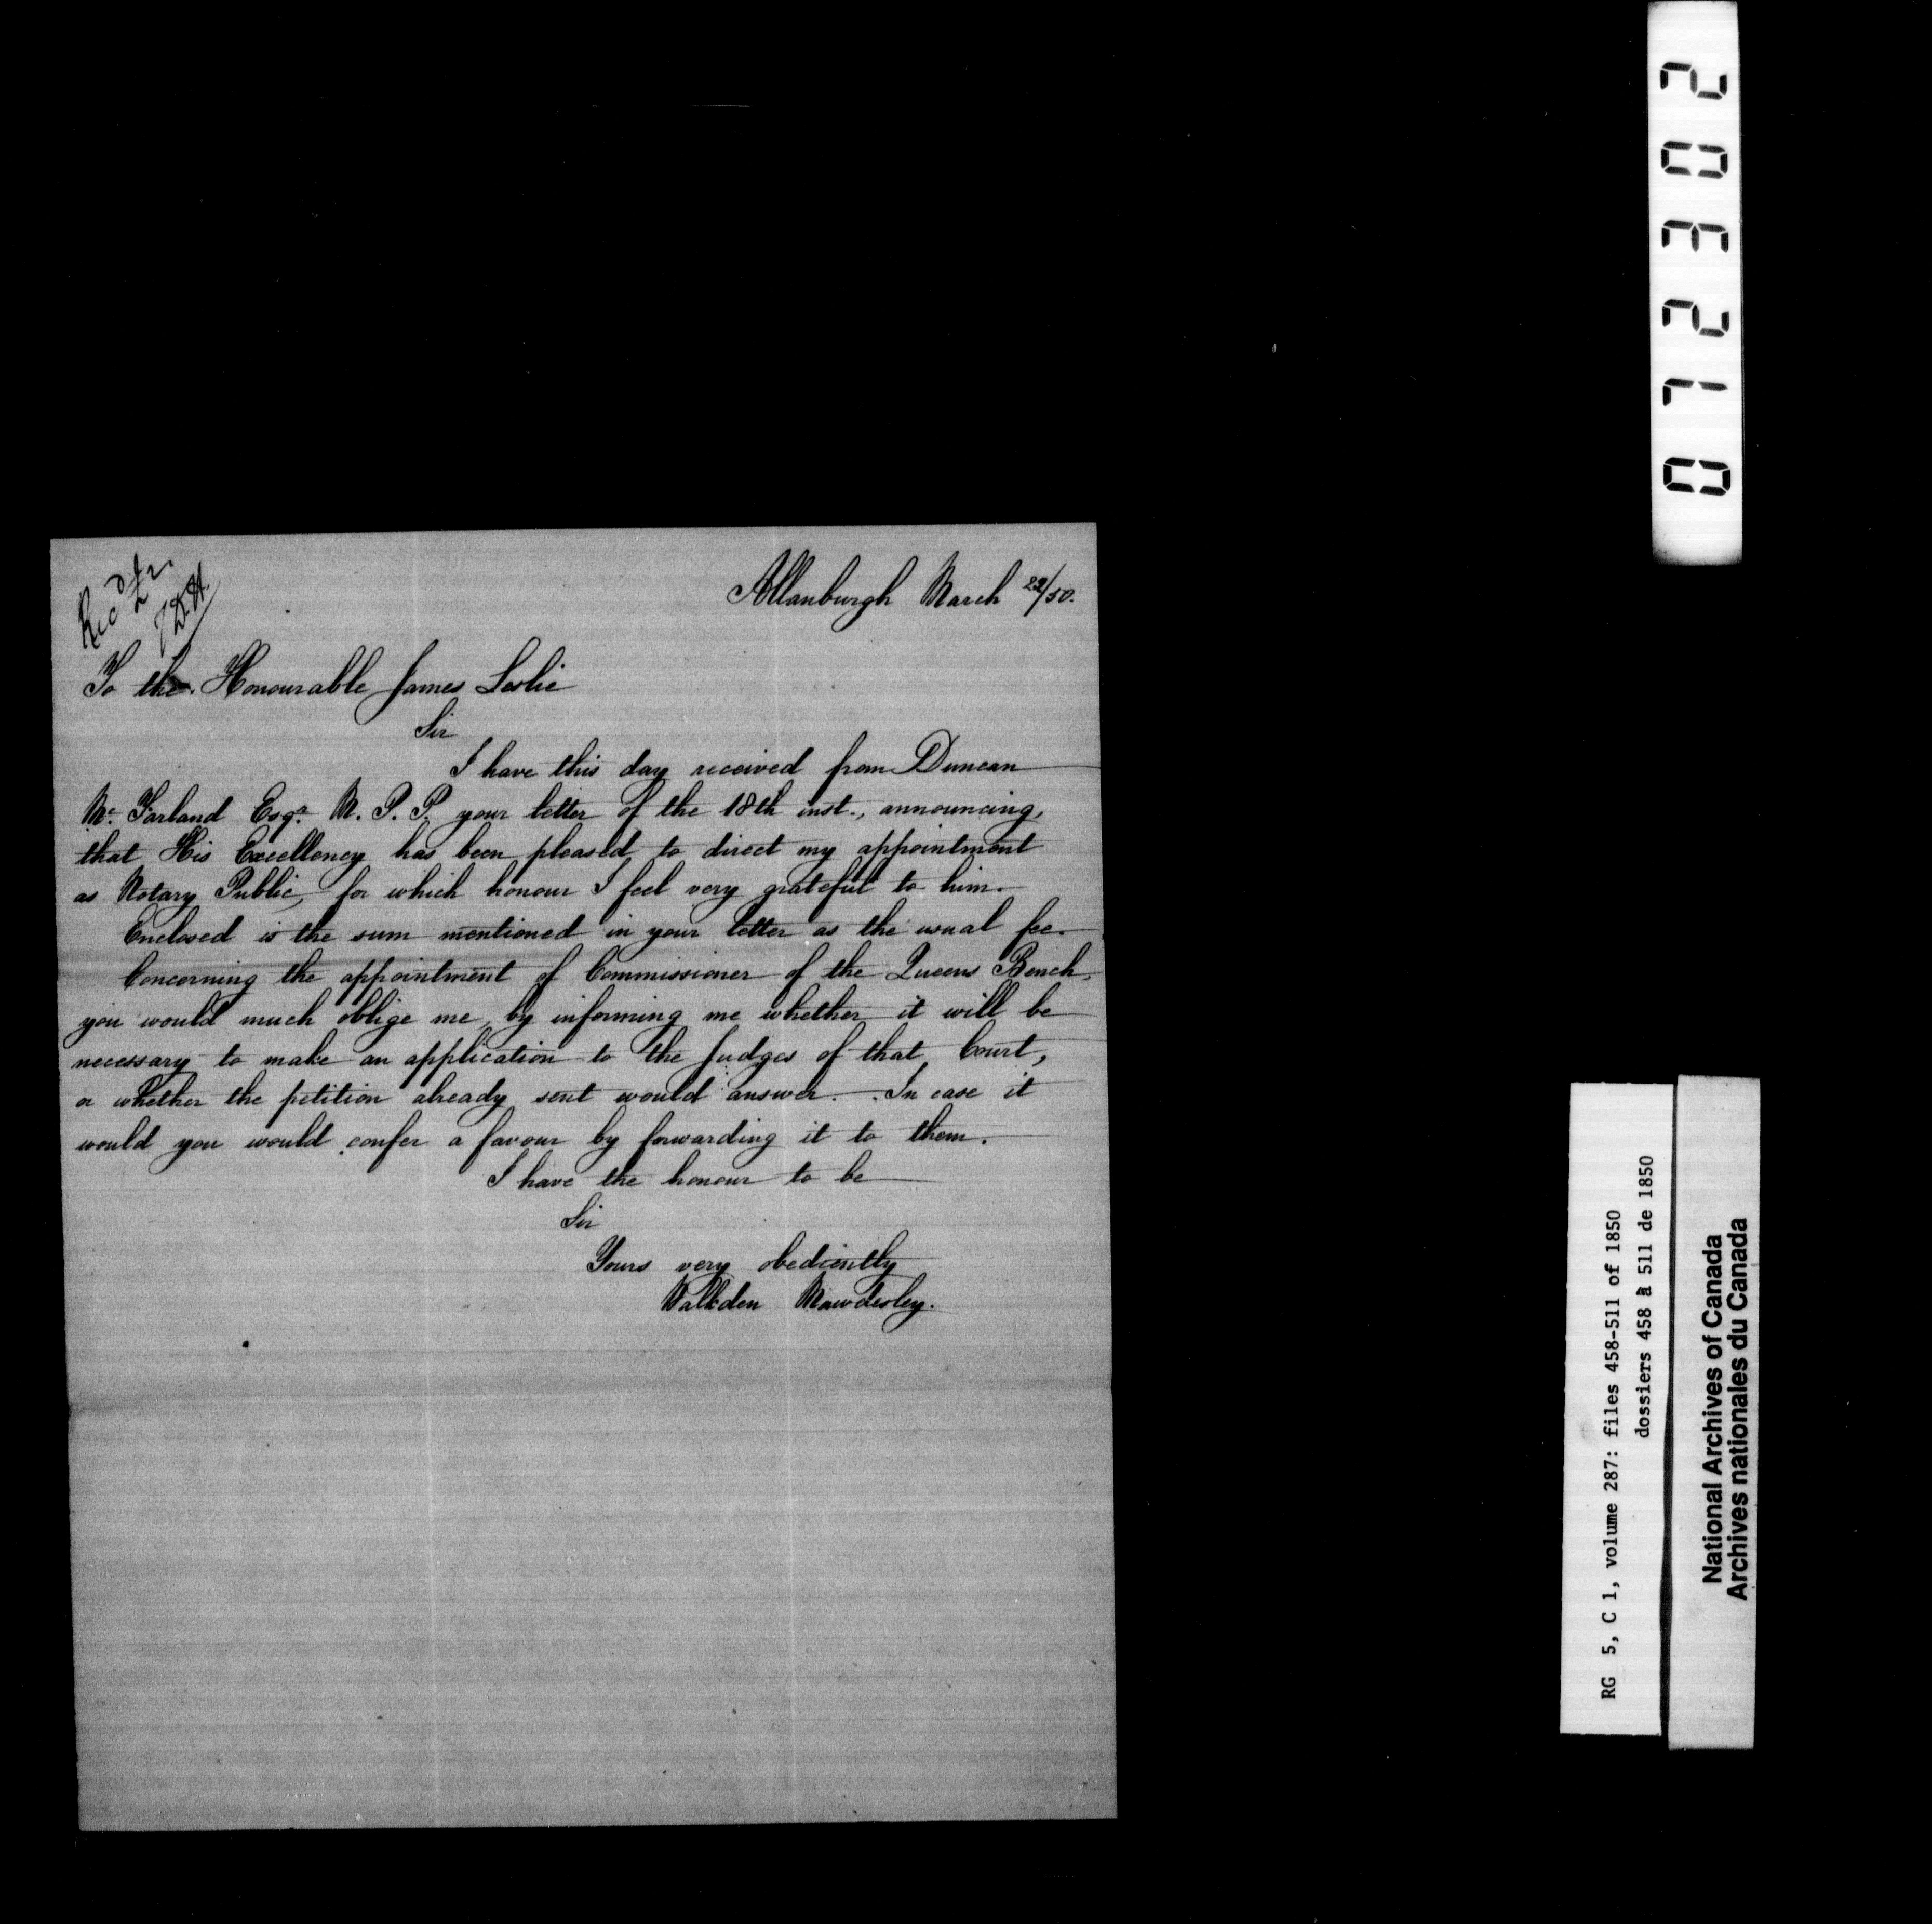 Rec
Allanburgh March 22/50.
To the Honourable James Leslie
Sir
I have this day received from Duncan
Mc. Farland Esqr. M. P. P. your letter of the 18th inst., announcing,
that His Excellency has been pleased to direct my appointment
as Notary Public, for which honour I feel very grateful to him.
Enclosed is the sum mentioned in your letter as the usual fee.
Concerning the appointment of Commissioner of the Queens Bench,
you would much oblige me, by informing me whether it will be
necessary to make an application to the Judges of that Court,
or whether the petition already sent would answer. In case it
would you would confer a favour by forwarding it to them.
I have the honour to be
Sir
Yours very obediently
Walkden Mawdesley.
072302
RG 5, C 1, volume 287: files 458-511 of 1850
dossiers 458 à 511 de 1850
National Archives of Canada
Archives nationales du Canada